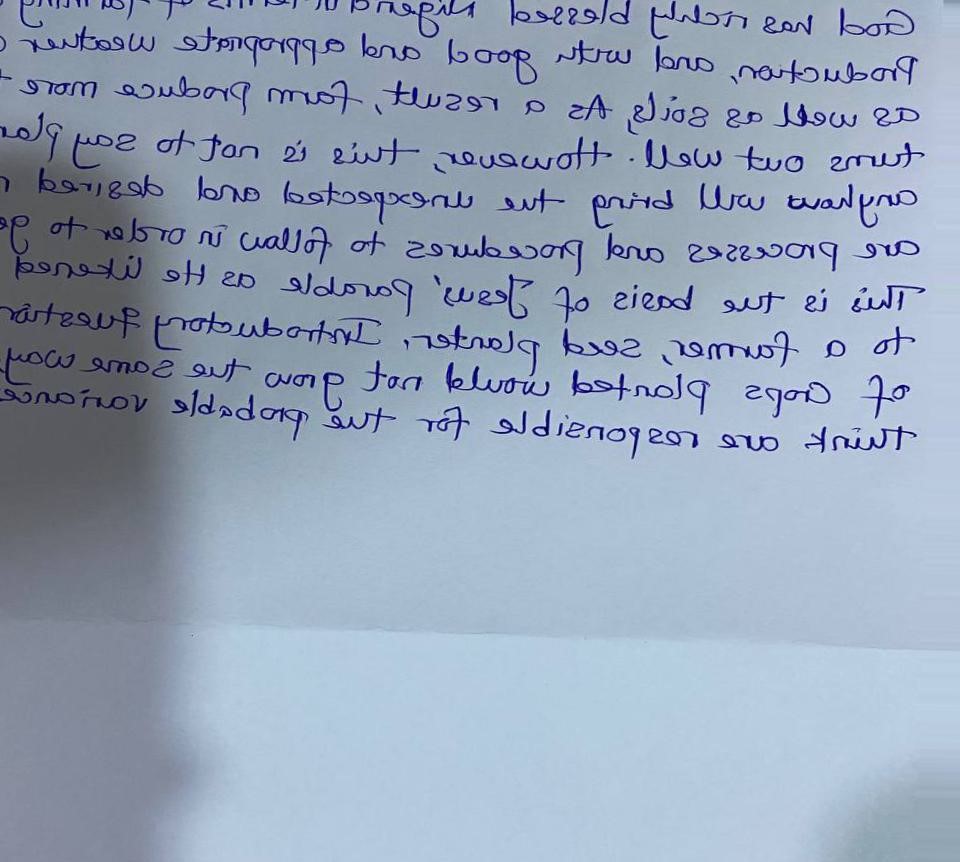 God has richly blessed Nigeria in terms of farming
Production, and with good and appropriate weather
as well as Soil, As a result, farm produce more
turns out well. However, this is not to say
anyhow will bring the unexpected and desired
are processes and procedures to follow in order to
This is the basis of Jesus' parable as He likened
to a farmer, seed planter, Introductory
of Crops planted would not grow the same way
think are responsible for the probable